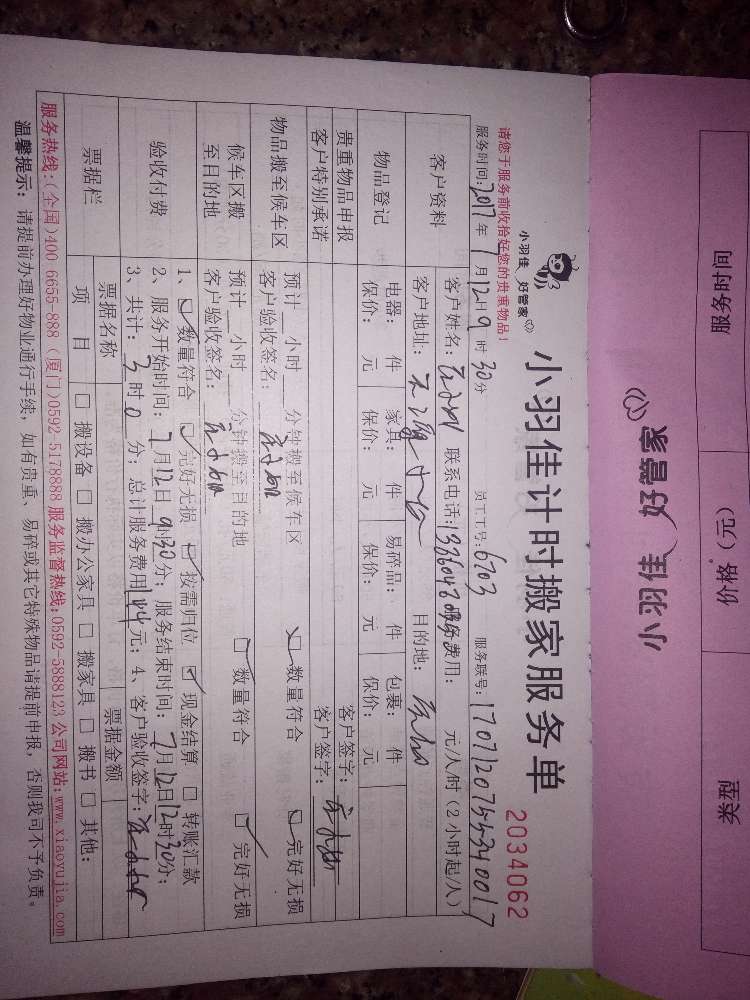 小羽佳 好管家
小羽佳计时搬家服务单
2034062
请您于服务前收拾好您的贵重物品！
服务时间：2017年7月12日9时30分 员工工号：6703 服务联号：
客户资料
客户姓名： 联系电话： 服务费用： 元/人/时（2小时起/人）
客户地址： 目的地：
物品登记
电器： 件 家具： 件 易碎品： 件 包裹： 件
保价： 元 保价： 元 保价： 元 保价： 元
贵重物品申报 客户签字：
客户特别承诺 客户签字：
物品搬至候车区
预计 小时 分钟搬至候车区 □数量符合 □完好无损
客户验收签名：
候车区搬至目的地
预计 小时 分钟搬至目的地 □数量符合 □完好无损
客户验收签名：
验收付费
1、□数量符合 □完好无损 □按需归位 □现金结算 □转账汇款
2、服务开始时间：7月12日9时30分；服务结束时间：7月12日12时30分；
3、共计：3时0分；总计服务费用144元；4、客户验收签字：
票据栏
票据名称 票据金额
项目 □搬设备 □搬办公家具 □搬家具 □搬书 □其他：
服务热线：(全国)400 6655-888 (厦门)0592-5178888 服务监督热线：0592-5888123 公司网站：www.xiaoyujia.com
温馨提示：请提前办理好物业通行手续，如有贵重、易碎或其它特殊物品请提前申报，否则我司不予负责。
小羽佳 好管家
服务时间 价格（元） 类型